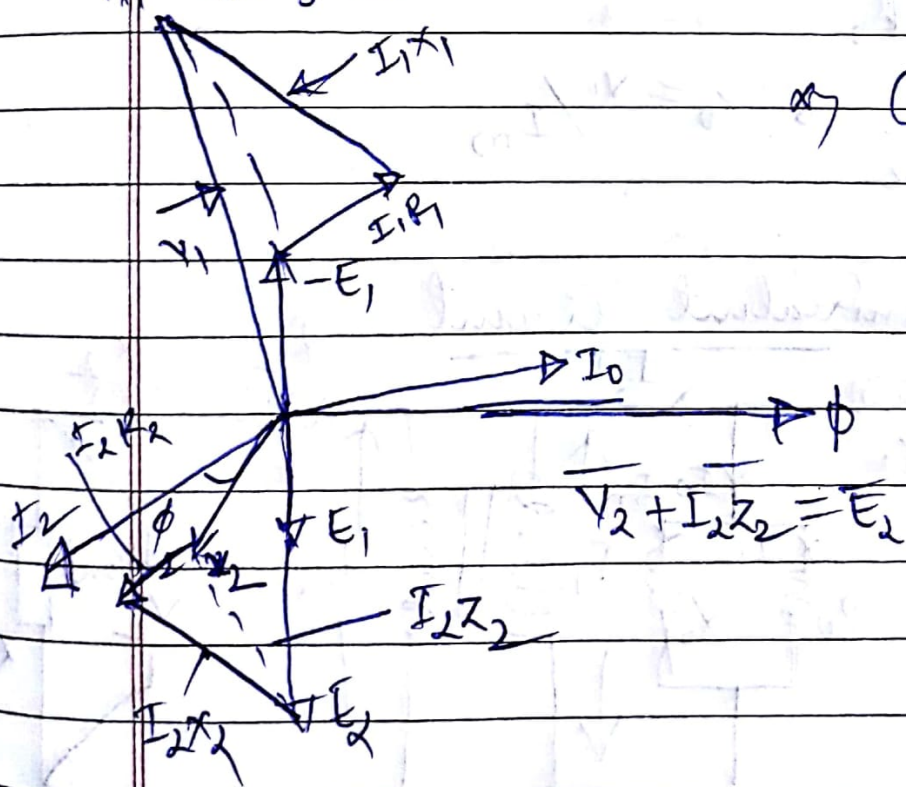 I₁X₁
I₁R₁
V₁
-E₁
I₀
ϕ
I₂R₂
I₂
ϕ
V₂
E₁
V̅₂ + I̅₂Z₂ = E̅₂
I₂Z₂
I₂X₂
E₂